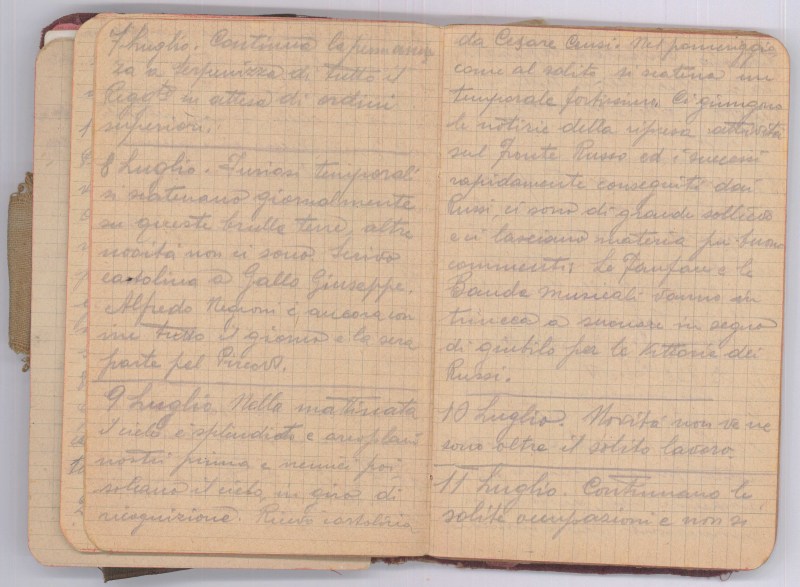 7 Luglio. Continua la permanen
za a Serpenizza di tutto il
Regg.to in attesa di ordini
superiori.
8 Luglio. Furiosi temporali
si scatenano giornalmente
su queste brulle terre, altre
novità non ci sono. Scrivo
cartolina a Gallo Giuseppe.
Alfredo Negroni è ancora con
me tutto il giorno e la sera
parte pel
9 Luglio. Nella mattinata
il cielo è splendido e areoplani
nostri prima e nemici poi
solcano il cielo, in giro di
ricognizione. Ricevo cartolina
da Cesare Censi. Nel pomeriggio
come al solito, si scatena un
temporale fortissimo. Ci giungono
le notizie della ripresa attività
sul fronte Russo ed i successi
rapidamente conseguiti dai
Russi, ci sono di grande sollievo
e ci lasciano materia per buoni
commenti. Le Fanfare e le
Bande Musicali vanno in
trincea a suonare in segno
di giubilo per le vittorie dei
Russi.
10 Luglio. Novità non ve ne
sono oltre il solito lavoro.
11 Luglio. Continuano le
solite occupazioni e non si